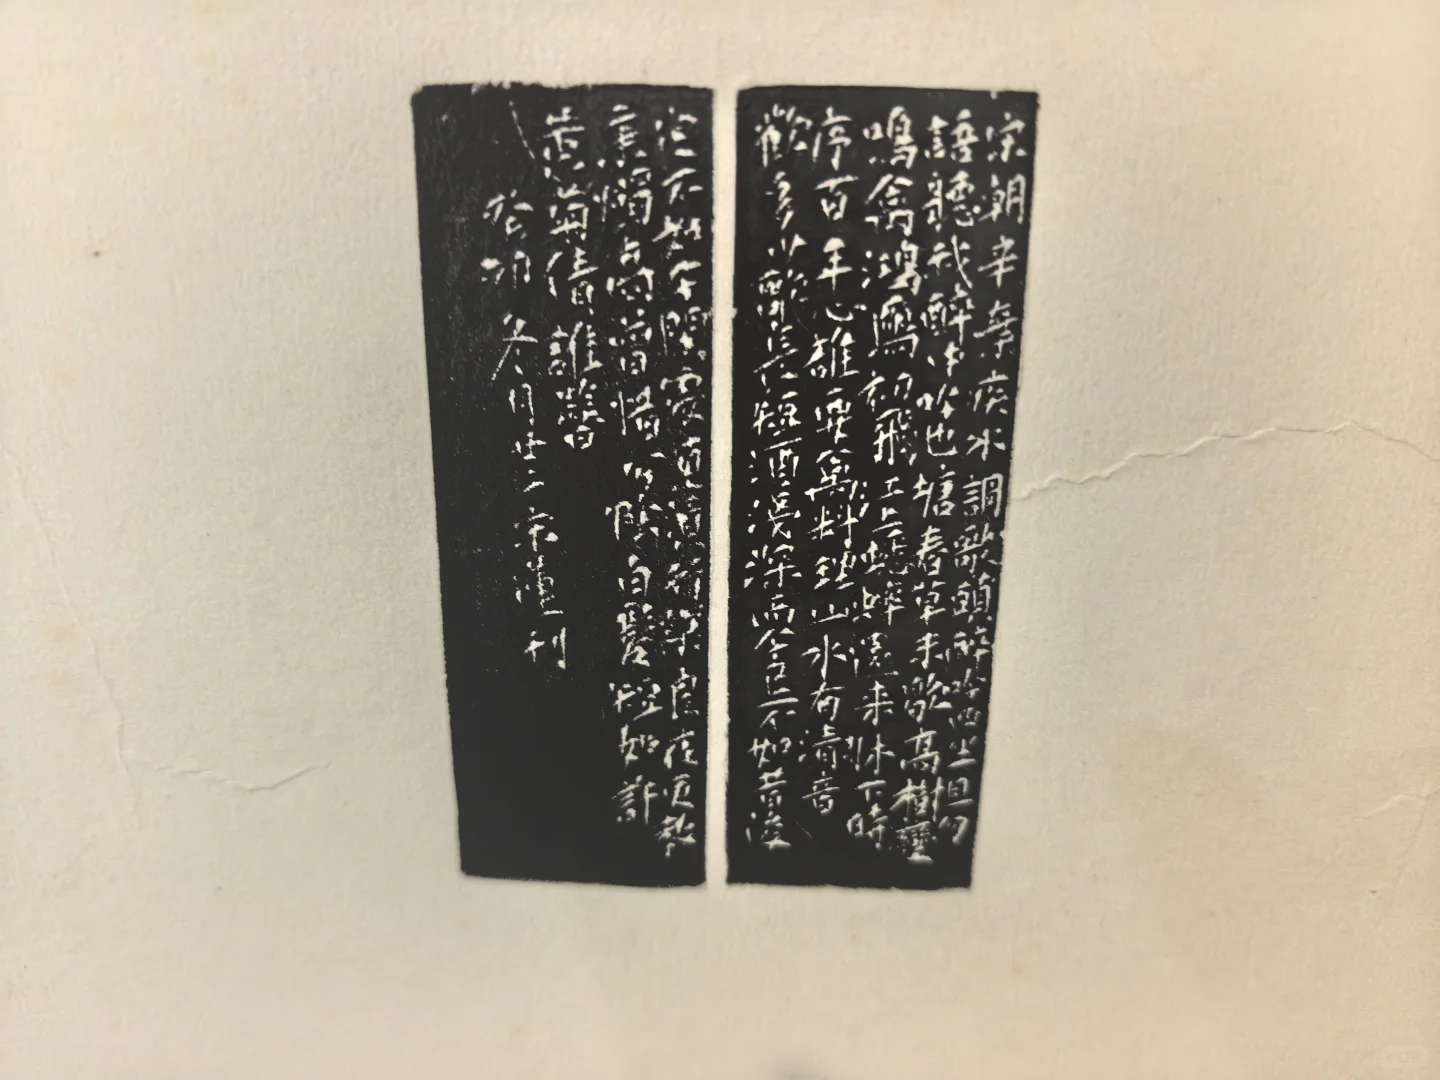 宋朝辛棄疾水調歌頭醉吟四坐但勿
語聽我醉中吟也塘春草未歇高樹變
鳴禽鴻鴈初飛江上蟋蟀還來牀下時
序百年心雖要萬料山水有清音
歡多少歌長短酒淺深而今已不如昔後
定不如今閑處直須行樂良夜更教
秉燭高會惜分陰白髮短如許
黃菊倩誰簪
癸卯冬月廿二宗刊